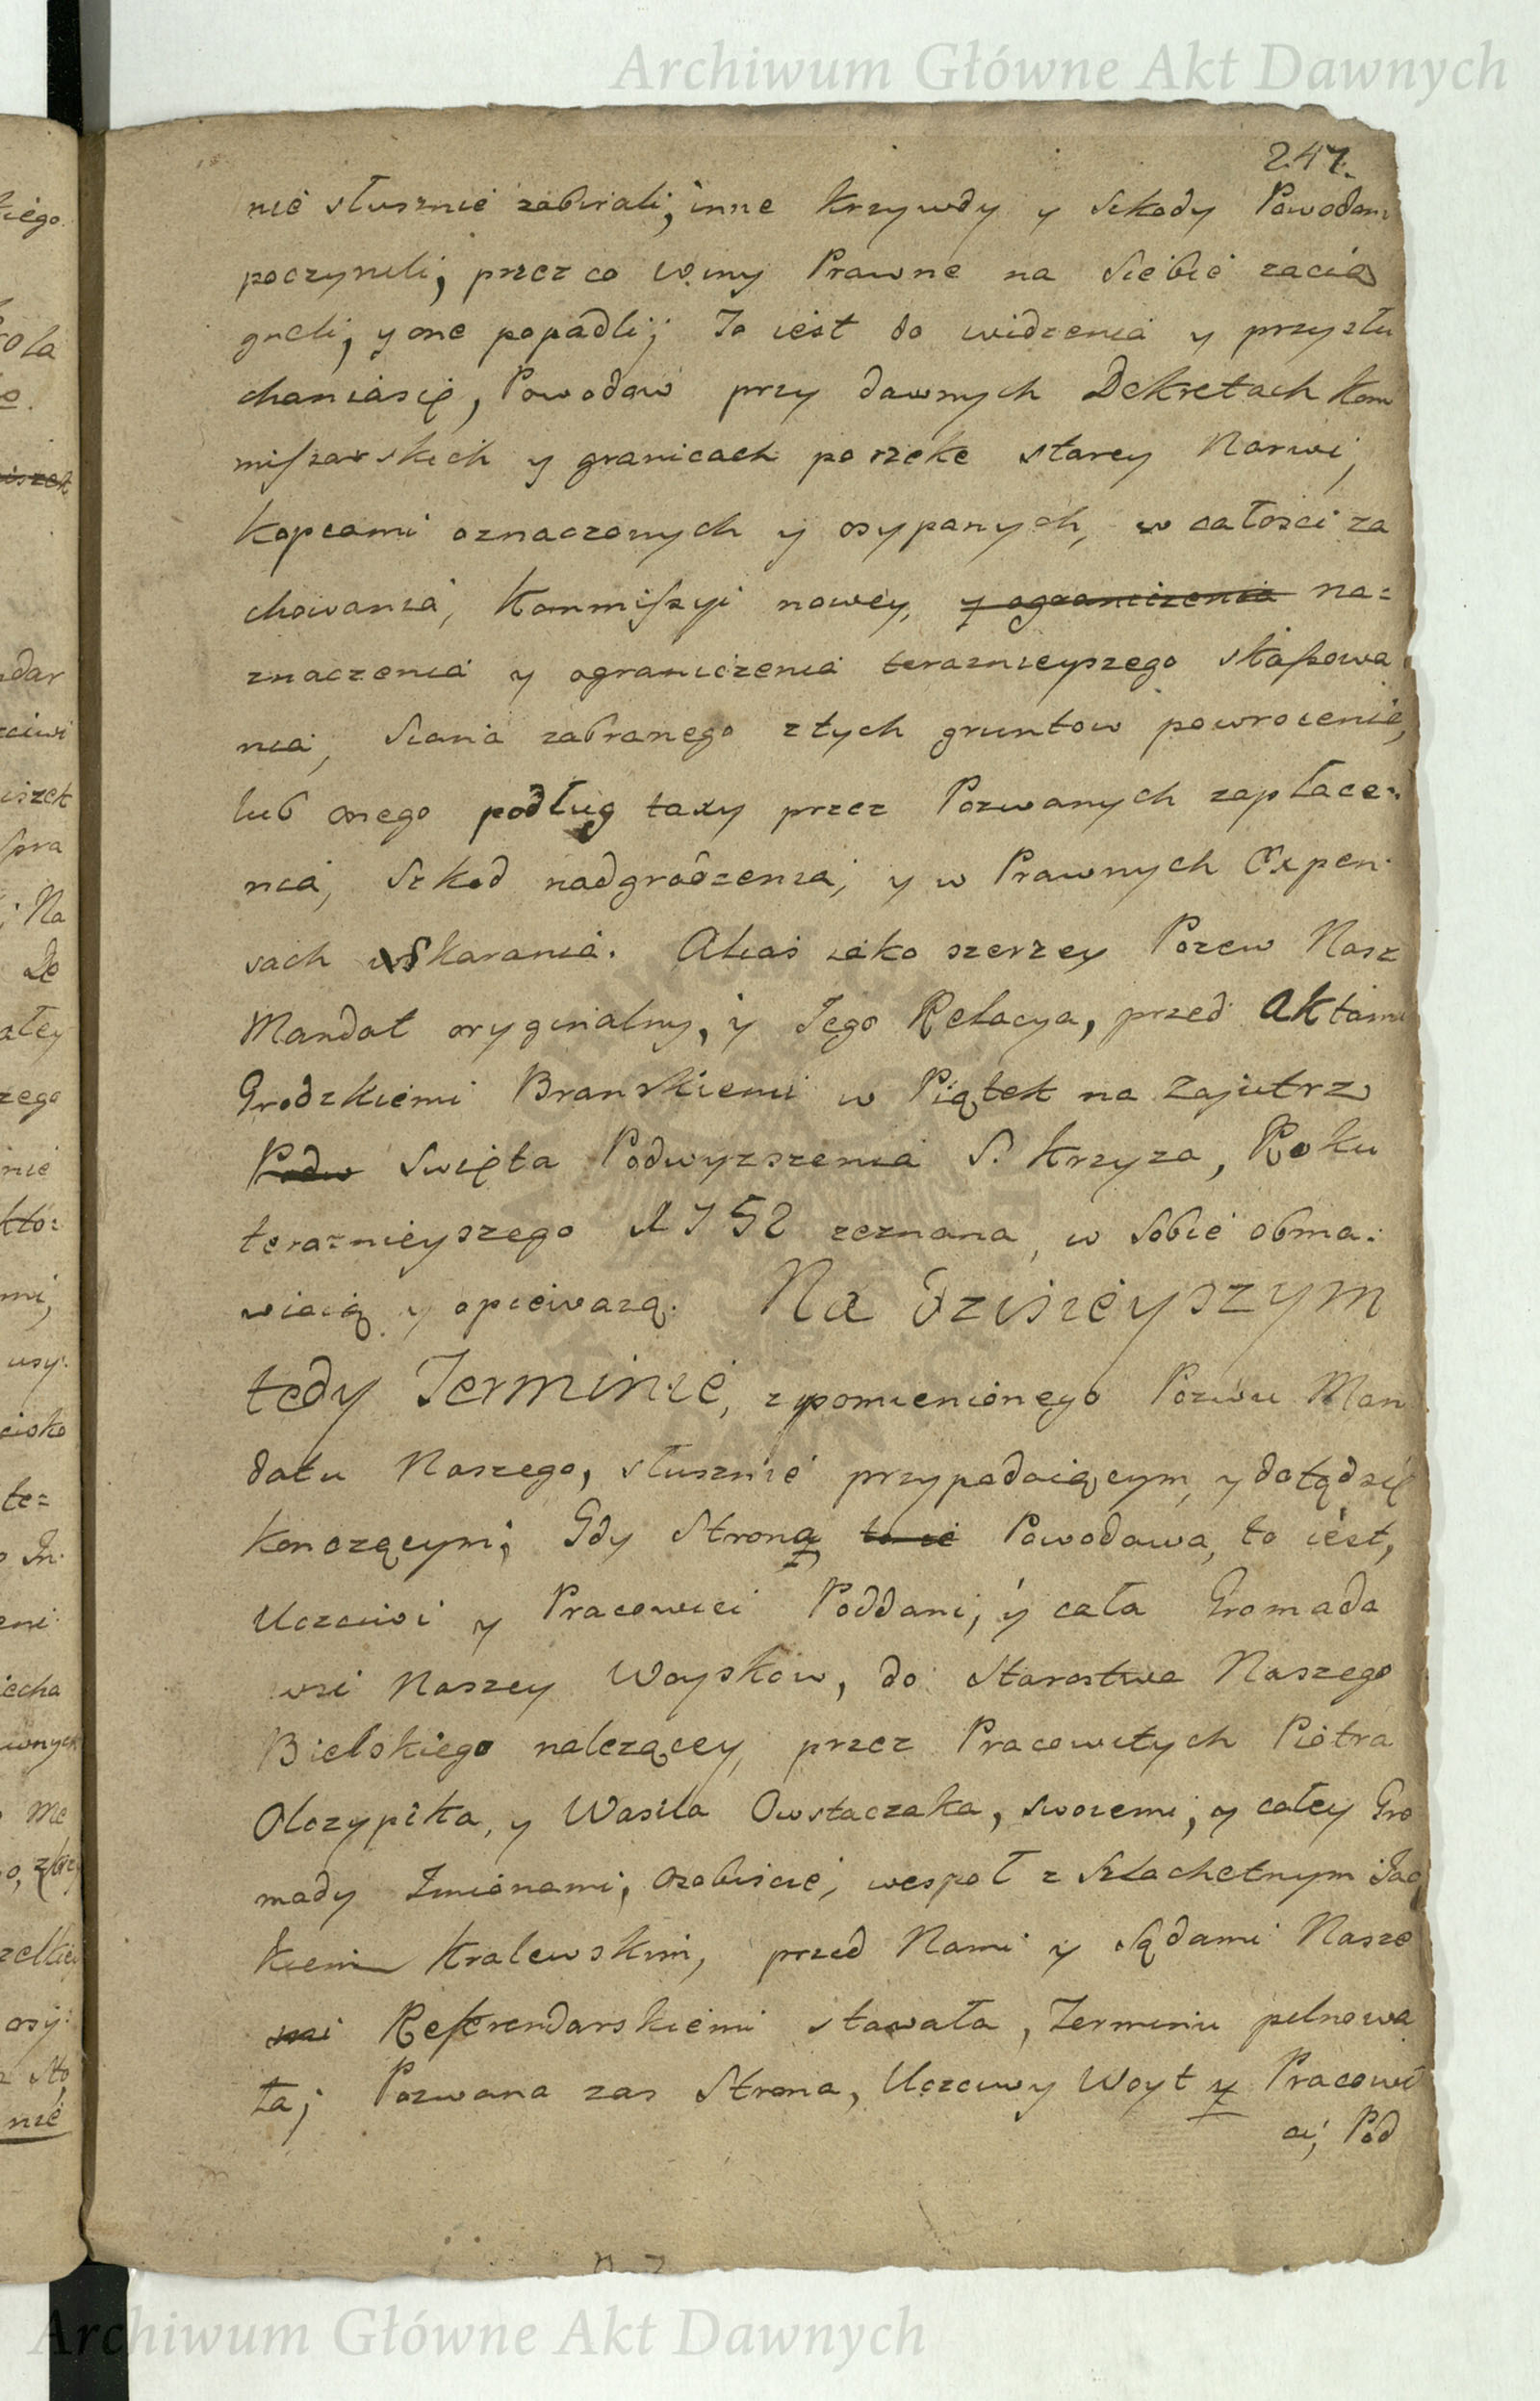 Archiwum Główne Akt Dawnych
247.
nie słusznie zabirali, inne Krzywdy y Szkody Powodom
poczynili, przez co winy Prawne na siebie zacią
gneli, y one popadli; To iest do widzenia y przysłu
chaniasię, Powodow przy dawnych Dekretach Kom
miſsarskich y granicach po rzeke starey Narwi,
Kopcami oznaczonych y osypanych, w całosci za
chowania, Kommiſsyi nowey, y ograniczenia na=
znaczenia y ograniczenia teraznieyszego skaſsowa
nia, Siana zabranego z tych gruntow powrocenie,
lub onego podług taxy przez Pozwanych zapłace=
nia, Szkod nadgrodzenia, y w Prawnych Expen
sach wskarania. Alias iako szerzey Pozew Nasz
Mandat oryginalny, y Jego Relacya, przed Aktami
Grodzkiemi Branskiemi w Piątek na Zajutrz
Podw Swięta Podwyzszenia S. Krzyza, Roku
teraznieyszego 1752 zeznana, w sobie obma=
wiaią y opiewaią. Na dzisieyszym
tedy Terminie, z pomienionego Pozwu Man
datu Naszego, słusznie przypadaiącym, y dotądsię
Konczącym; Gdy Strona Powodowa, to iest,
Uczciwi y Pracowici Poddani, y cała Gromada
wsi Naszey Woyskow, do Starostwa Naszego
Bielskiego nalezącey, przez Pracowitych Piotra
Olczypika, y Wasila Owstaczaka, swoiemi, y całey Gro
mady Imionami, Osobiscie, wespoł z Szlachetnym Jac
kiem Kralewskim, przed Nami y Sądami Nasze
mi Referendarskiemi stawała, Terminu pilnowa
ła; Pozwana zas Strona, Uczciwy Woyt y Pracowi
ci, Pod
Archiwum Główne Akt Dawnych